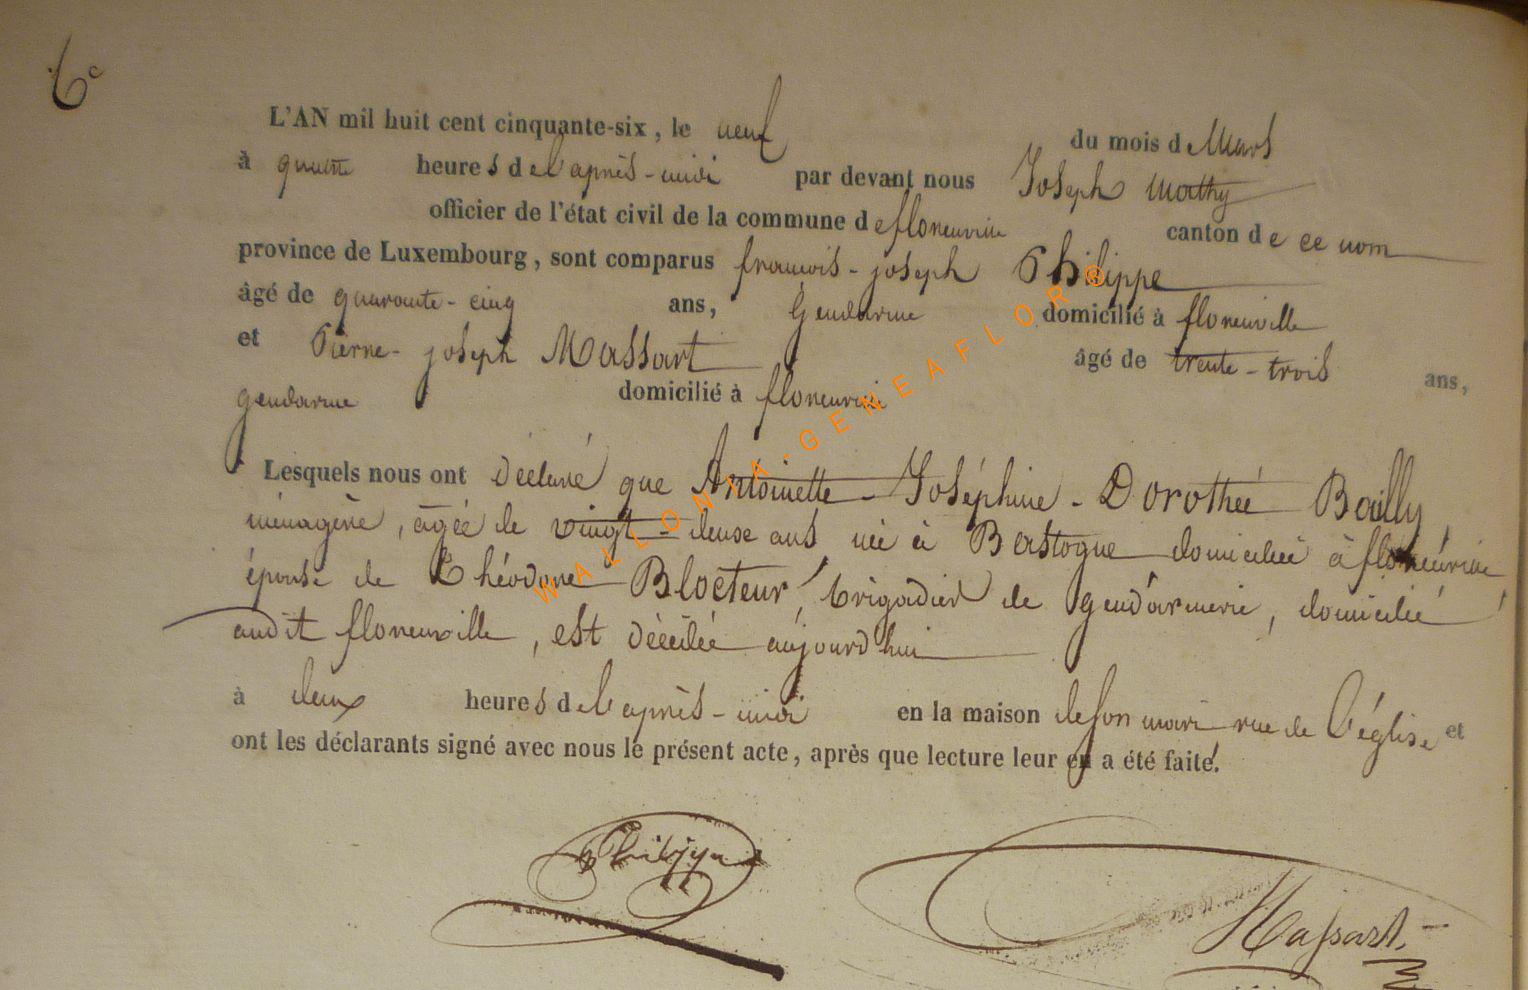 6e
L'AN mil huit cent cinquante-six, le neuf du mois de Mars
à quatre heures de l'après-midi par devant nous Joseph Mathy
officier de l'état civil de la commune de florenville canton de ce nom
province de Luxembourg, sont comparus françois-joseph Philippe
âgé de quarante-cinq ans, Gendarme domicilié à florenville
et Pierre-joseph Massart âgé de trente-trois ans,
gendarme domicilié à florenville
Lesquels nous ont déclaré que Antoinette-Joséphine-Dorothée Bailly,
ménagère, âgée de vingt-deux ans née à Bastogne domiciliée à florenville
épouse de Théodore Blocteur, brigadier de gendarmerie, domicilié
audit florenville, est décédée aujourd'hui
à deux heures de l'après-midi en la maison de son mari rue de l'église et
ont les déclarants signé avec nous le présent acte, après que lecture leur en a été faite.
Philippe
Massart
WALLONIA-GENEAFLOR®